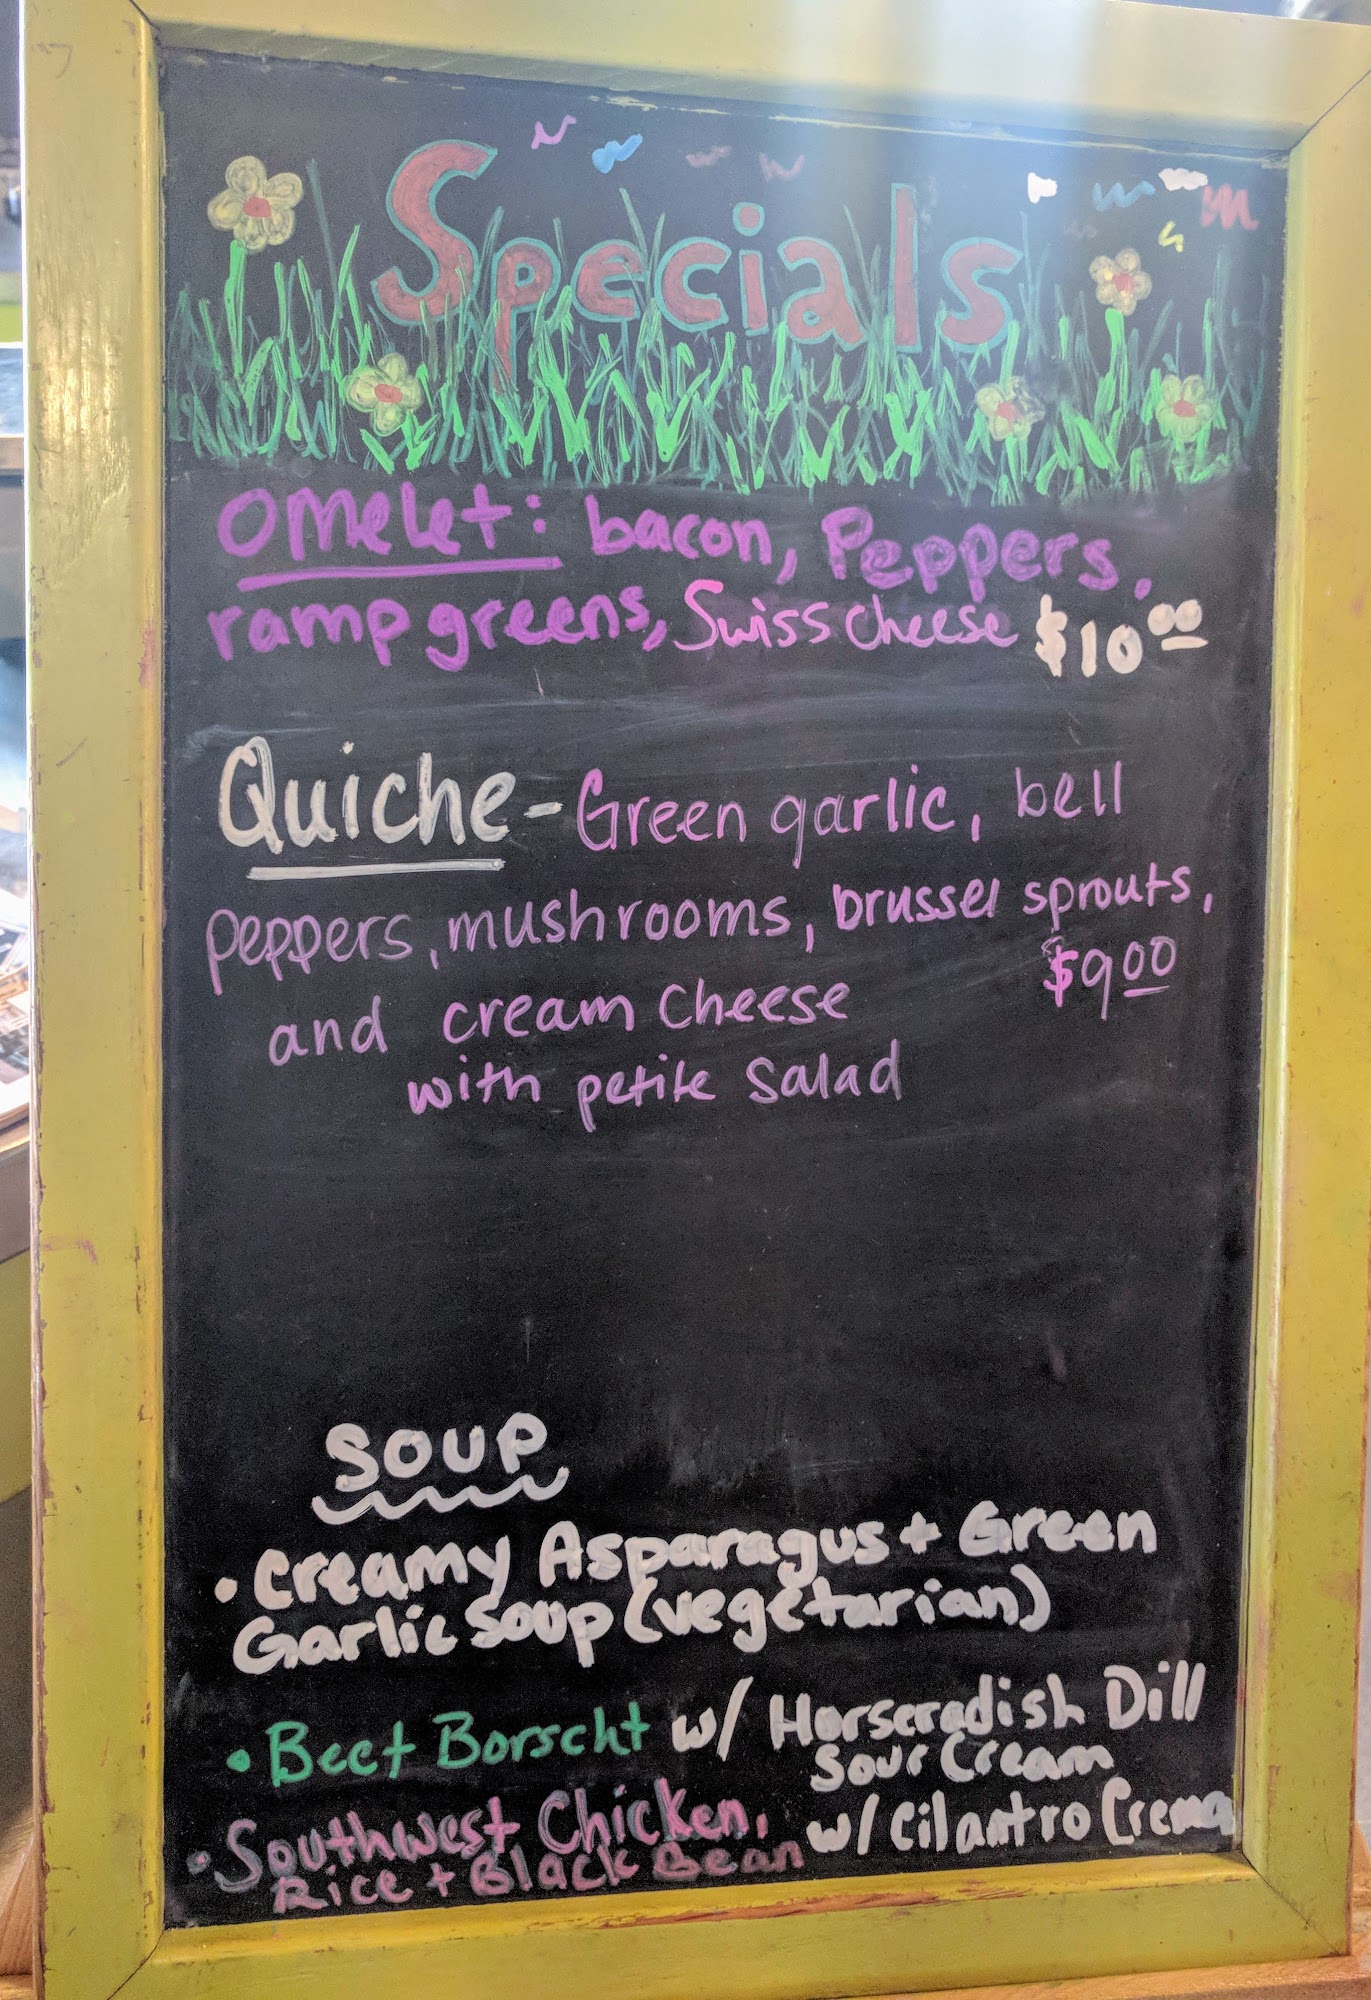 Specials
Omelet: bacon, Peppers,
ramp greens, Swiss cheese $10.00
Quiche - Green garlic, bell
peppers, mushrooms, brussel sprouts,
$9.00
and cream cheese
with petite salad
SOUP
• Creamy Asparagus + Green
Garlic Soup (vegetarian)
• Beet Borscht w/ Horseradish Dill
Sour Cream
• Southwest Chicken, w/ Cilantro Crema
Rice + Black Bean